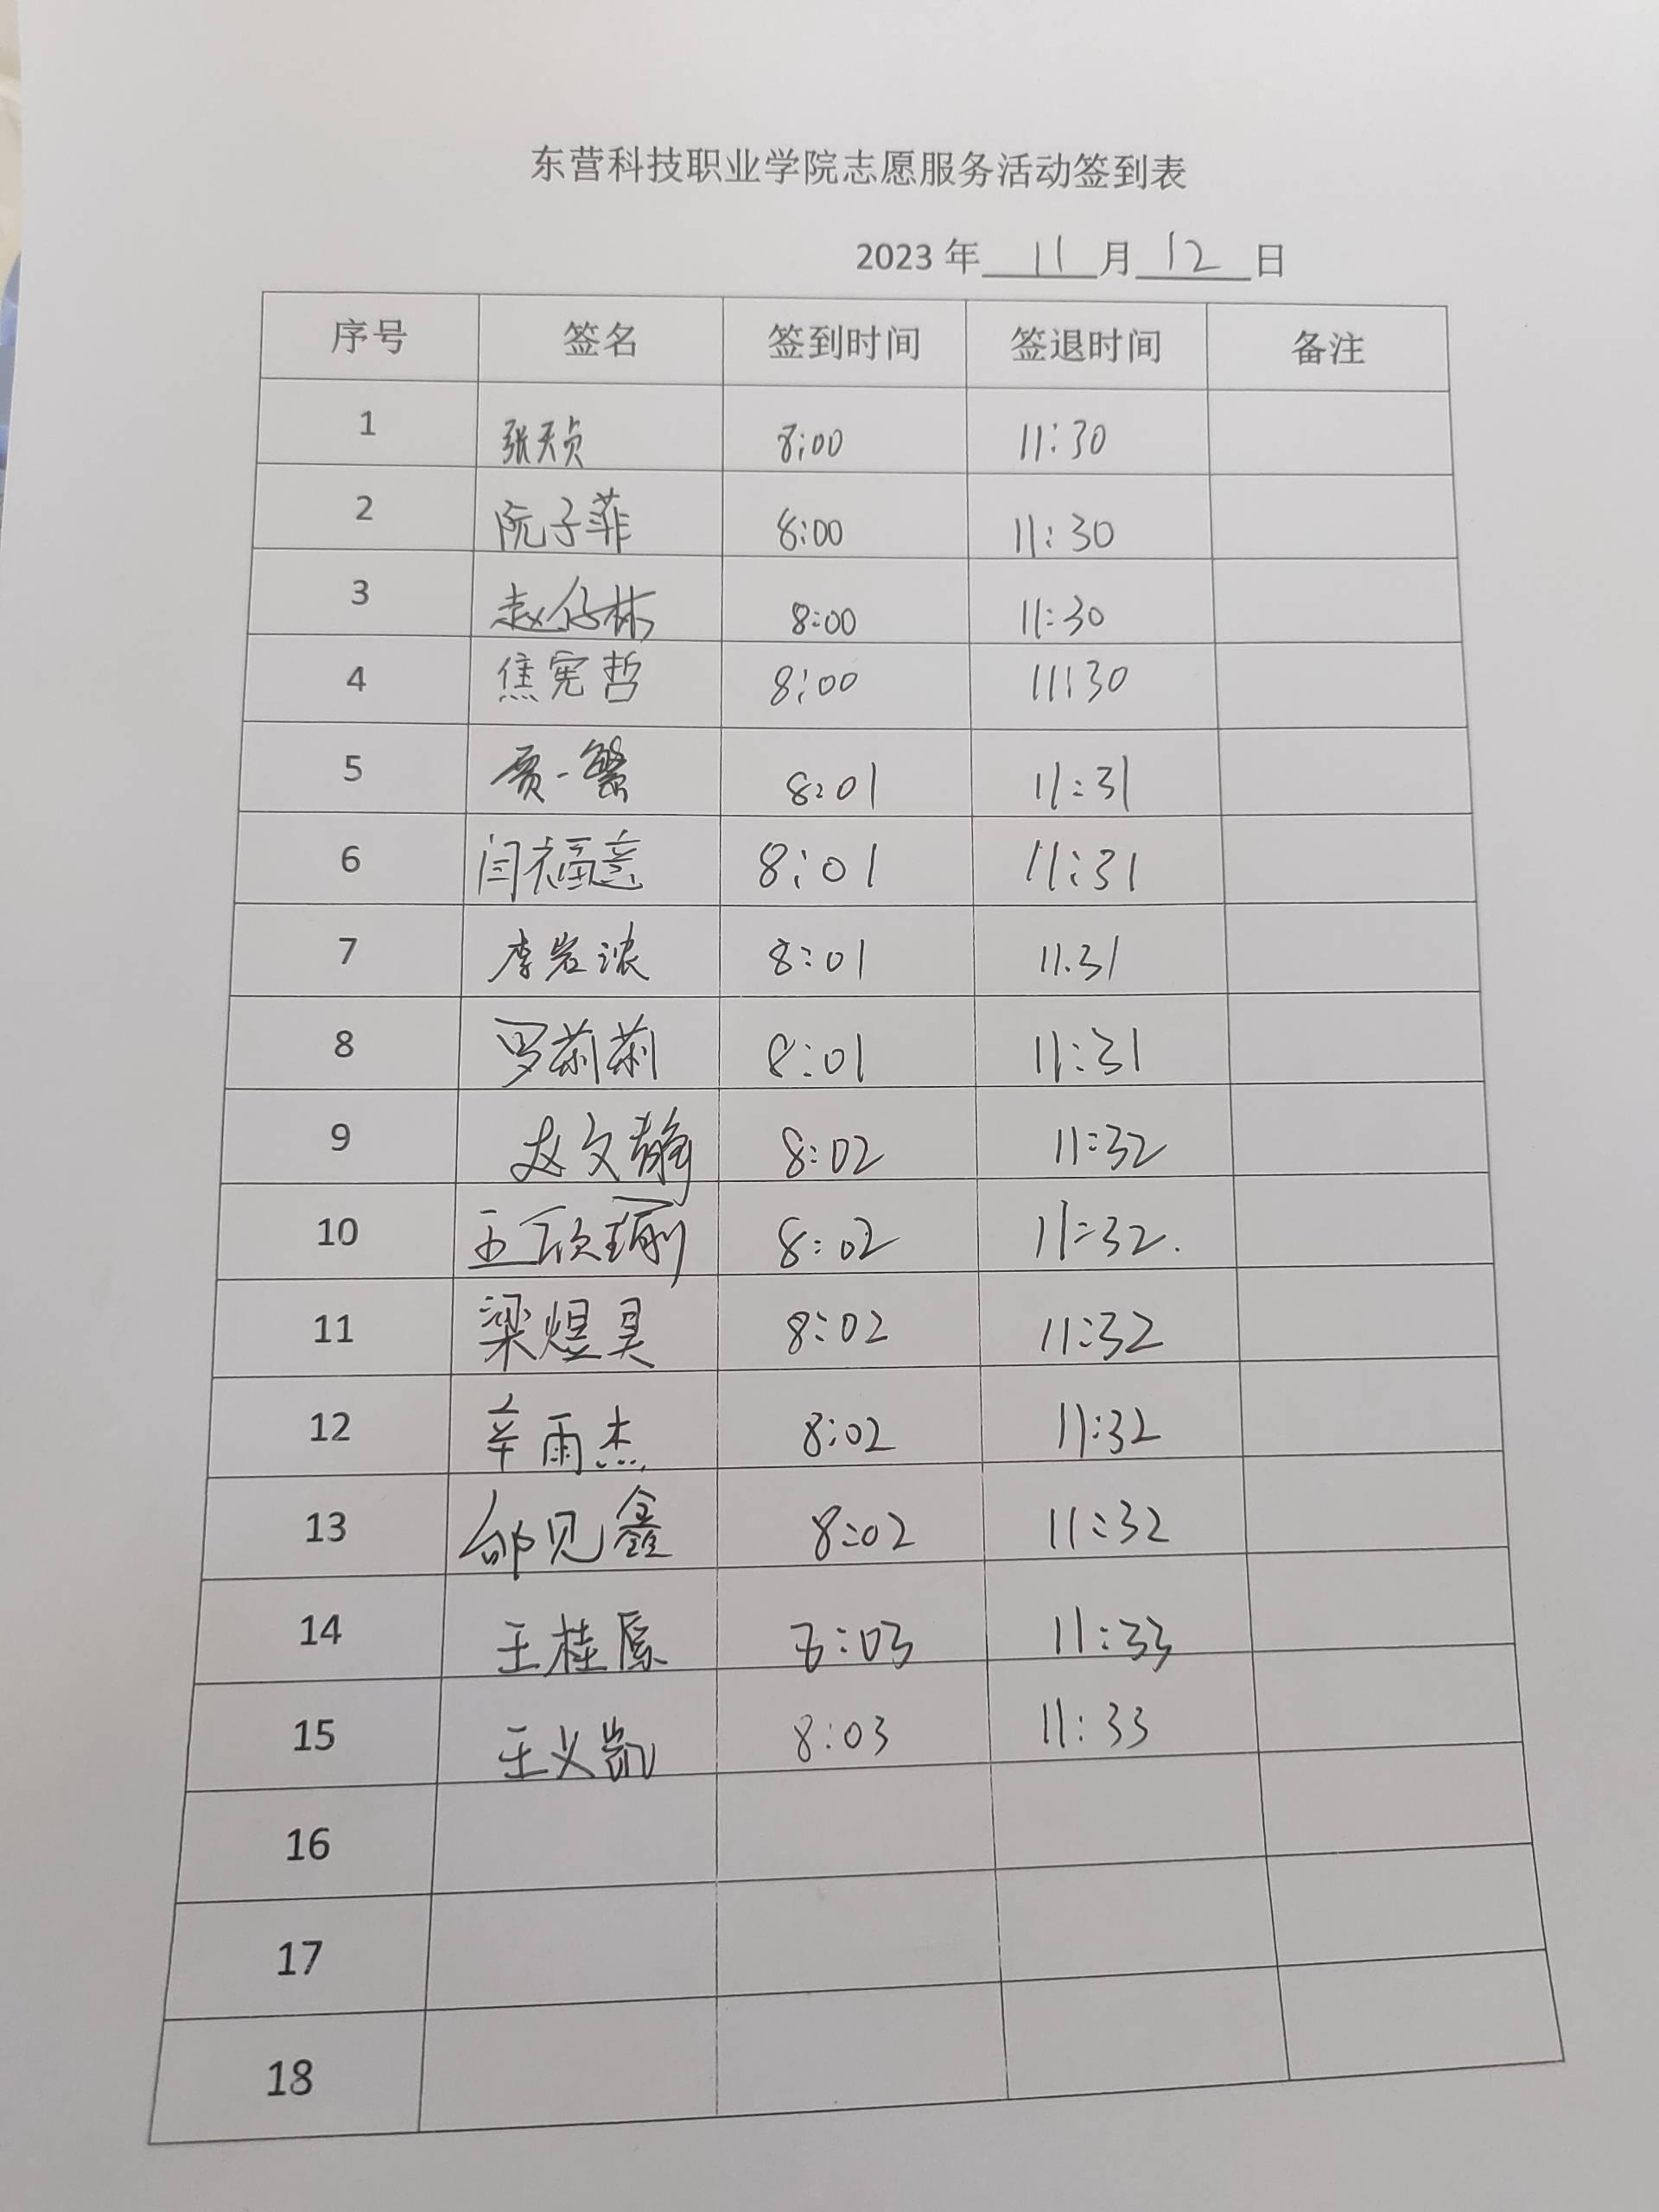 东营科技职业学院志愿服务活动签到表
2023 年 11 月 12 日
序号 签名 签到时间 签退时间 备注
1 张天贞 8:00 11:30
2 阮子菲 8:00 11:30
3 赵 林 8:00 11:30
4 焦宪哲 8:00 11:30
5 贾一 8:01 11:31
6 闫福意 8:01 11:31
7 李岩浓 8:01 11.31
8 罗莉莉 8:01 11:31
9 赵文静 8:02 11:32
10 王欣瑜 8:02 11:32.
11 梁煜昊 8:02 11:32
12 辛雨杰 8:02 11:32
13 邰见鑫 8:02 11:32
14 王桂 8:03 11:33
15 王义凯 8:03 11:33
16
17
18